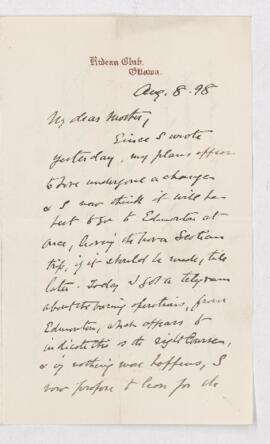 Rideau Club.
Ottawa.
Aug. 8 - 98
My dear Mother,
Since I wrote
yesterday, my plans appear
to have undergone a change
& I now think it will be
best to go to Edmonton at
once, leaving the Nova Scotian
trip, if it should be made, till
later. Today I got a telegram
about the boring operations, from
Edmonton, which appears to
indicate this is the right course,
& if nothing new happens, I
now propose to leave for